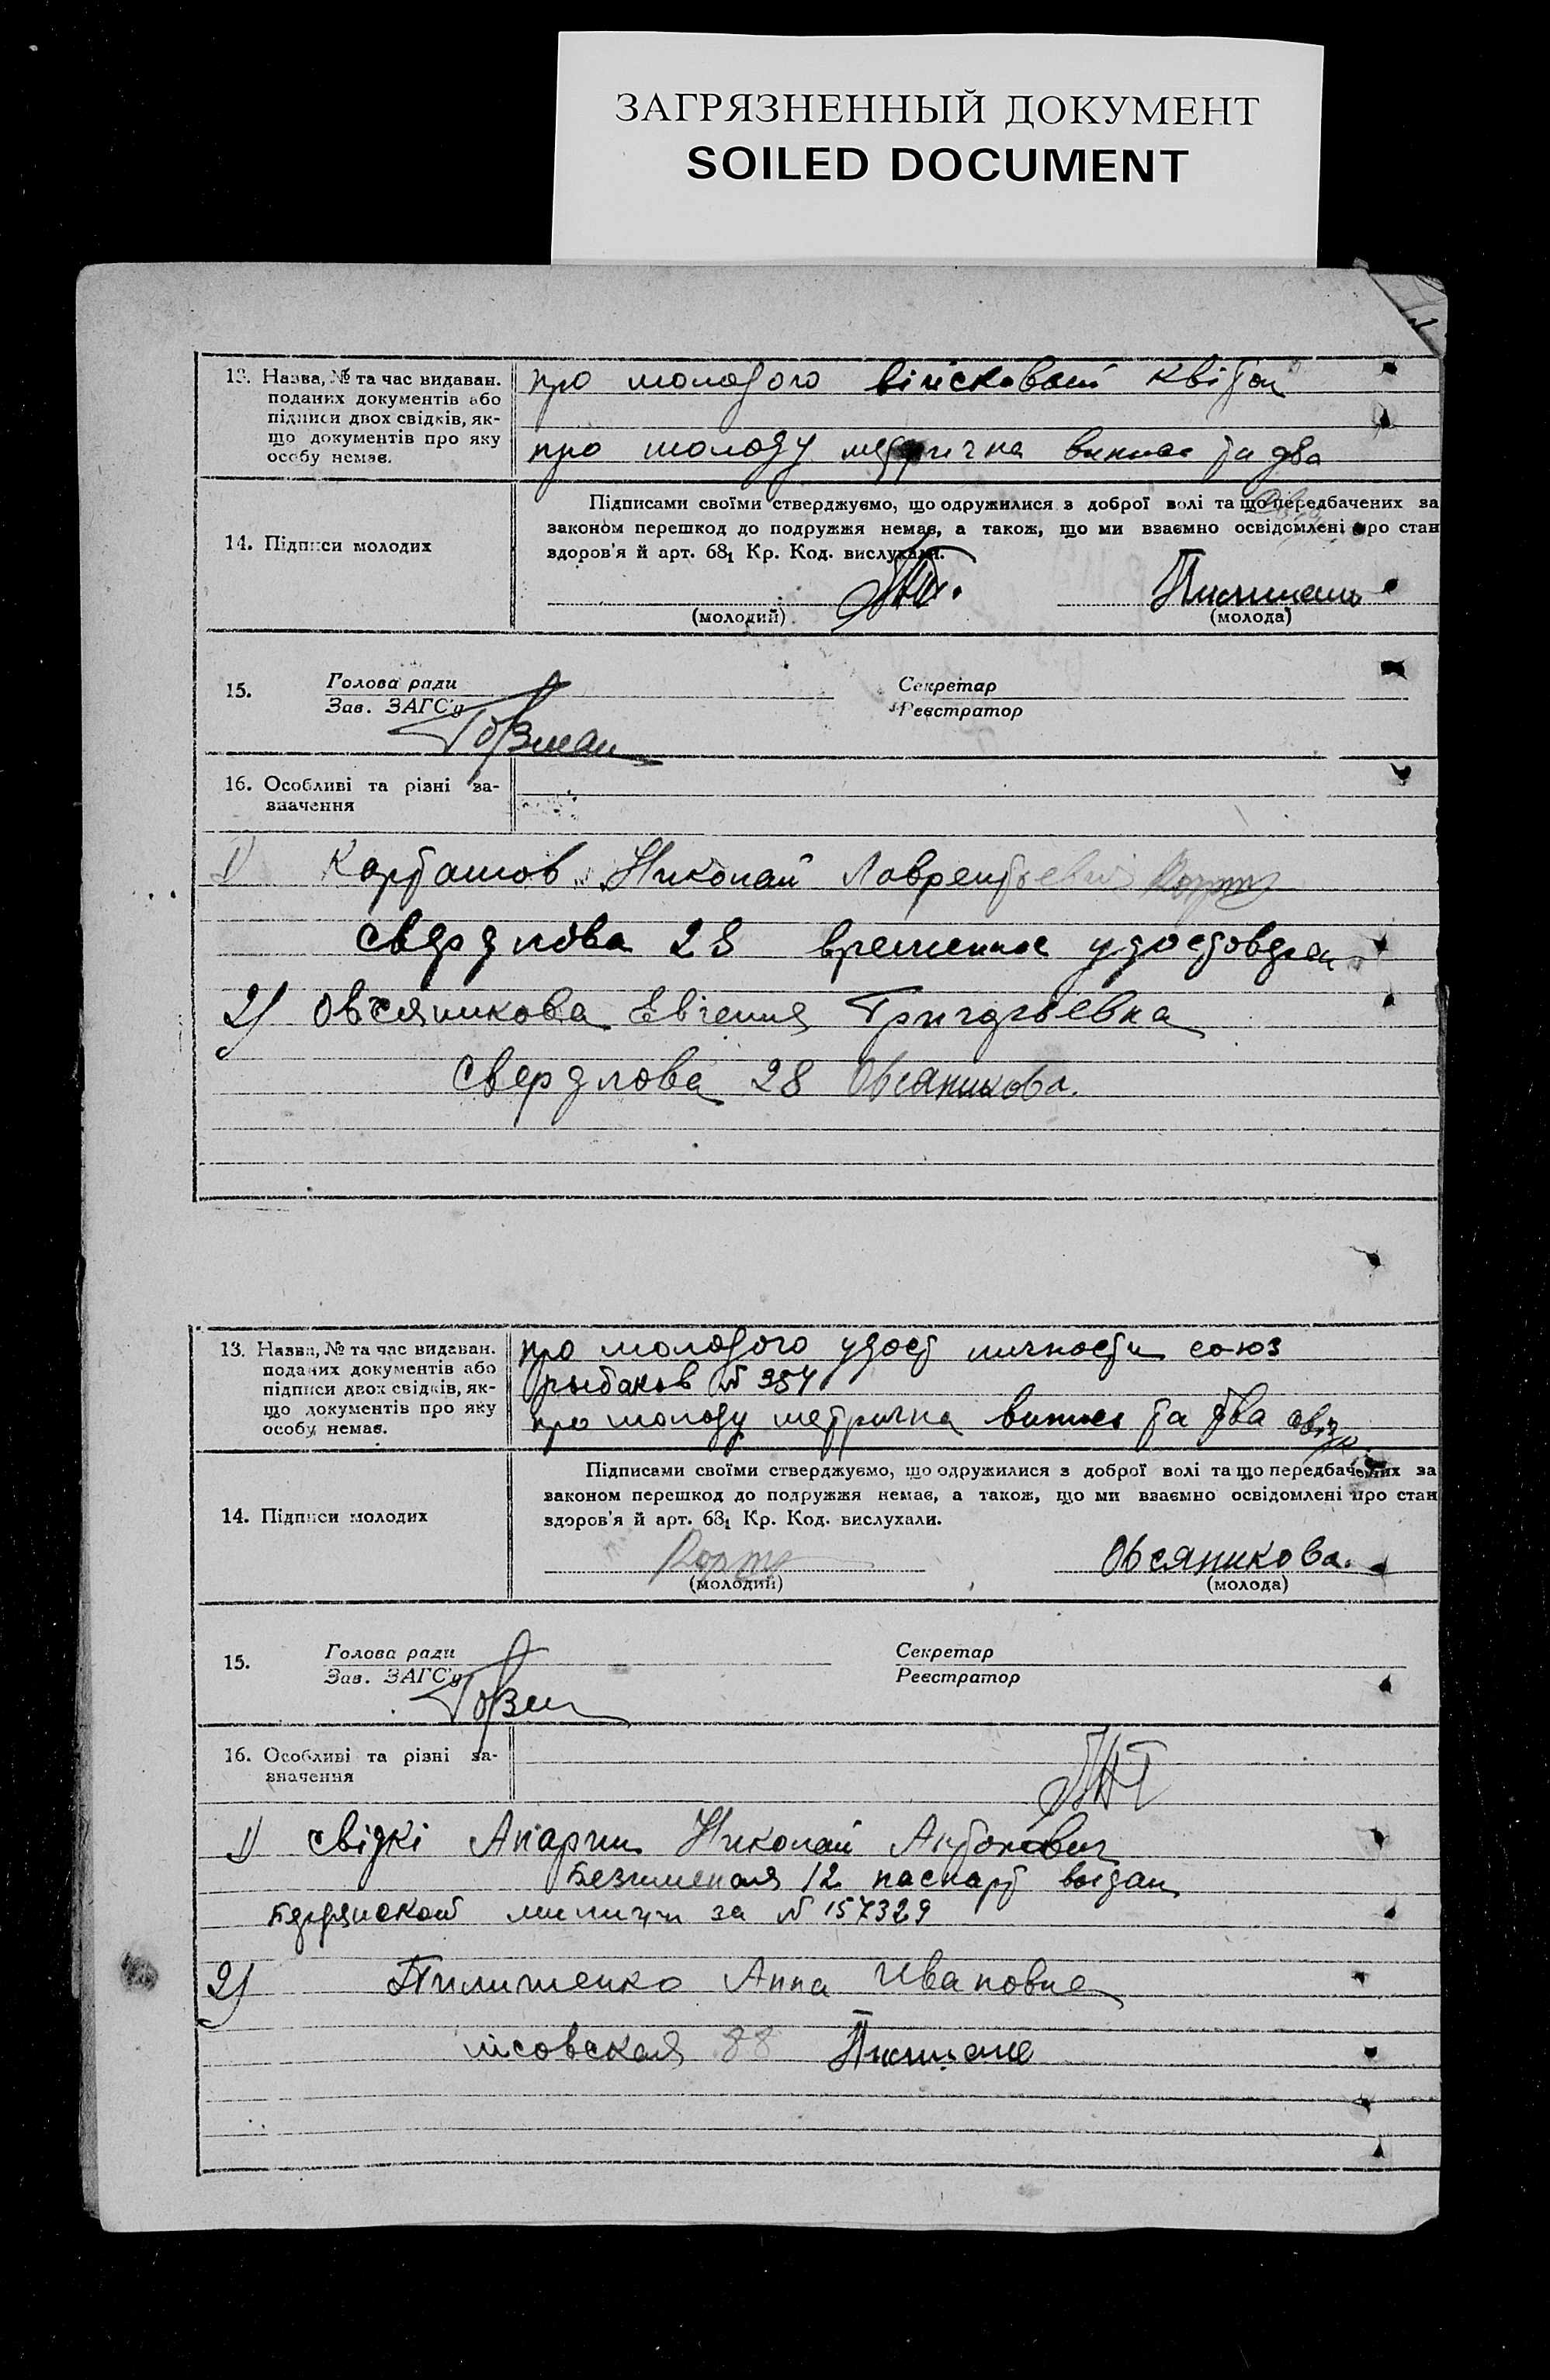 ЗАГРЯЗНЕННЫЙ ДОКУМЕНТ
SOILED DOCUMENT
13. Назва, № та час видаван. поданих документів або підписи двох свідків, якщо документів про яку особу немає.
про молодого війсковий квіток
про молоду метрична випис та два
14. Підписи молодих
Підписами своїми стверджуємо, що одружилися з доброї волі та що передбачених за
законом перешкод до подружжя немає, а також, що ми взаємно освідомлені про стан
здоров'я й арт. 68₁ Кр. Код. вислухали.
(молодий)
(молода)
15.
Голова ради
Зав. ЗАГС'у
Секретар
Реєстратор
16. Особливі та різні за-
значення
1) Карташов Николай Лаврентьевич
Свердлова 28 временное удостоверен
2) Овсяникова Евгения Григорьевна
Свердлова 28 Овсяникова.
13. Назва, № та час видаван.
поданих документів або
підписи двох свідків, як-
що документів про яку
особу немає.
про молодого удост личности союз
рыбаков № 354
про молоду метрична випис та два свід
14. Підписи молодих
Підписами своїми стверджуємо, що одружилися з доброї волі та що передбачених за
законом перешкод до подружжя немає, а також, що ми взаємно освідомлені про стан
здоров'я й арт. 68₁ Кр. Код. вислухали.
Овсяникова.
(молодий)
(молода)
15.
Голова ради
Зав. ЗАГС'у
Секретар
Реєстратор
16. Особливі та різні за-
значення
1) свідкі Апарин Николай Антонович
Безименая 12 паспорт видан
Бердянской милиции за № 157329
2) Пилипенко Анна Ивановна
лісовская 88